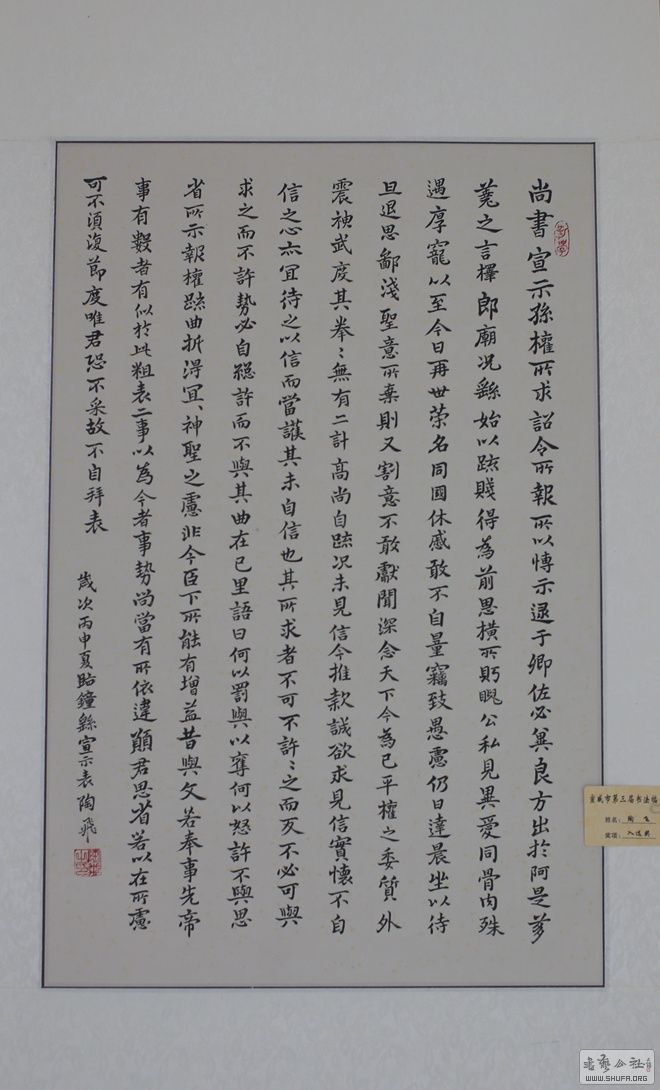 尚書宣示孫權所求詔令所報所以博示逮于卿佐必冀良方出於阿是芻
蕘之言擇郎廟況繇始以疏賤得為前恩橫所眄睨公私見異愛同骨肉殊
遇厚寵以至今日再世荣名同國休慼敢不自量竊致愚慮仍日達晨坐以待
旦退思鄙淺聖意所棄則又割意不敢獻聞深念天下今為已平權之委質外
震神武度其拳〻無有二計高尚自疏況未見信今推款誠欲求見信實懷不自
信之心亦宜待之以信而當護其未自信也其所求者不可不許〻之而反不必可與
求之而不許勢必自絕許而不與其曲在己里語曰何以罰與以奪何以怒許不與思
省所示報權疏曲折得宜〻神聖之慮非今臣下所能有增益昔與文若奉事先帝
事有數者有似於此粗表二事以為今者事勢尚當有所依違願君思省若以在所慮
可不須復節度唯君恐不采故不自拜表
歲次丙申夏臨鐘繇宣示表陶飛
宣威市第三届书法
姓名：陶飞
奖项：入选奖
書藝公社
WWW.SHUFA.ORG